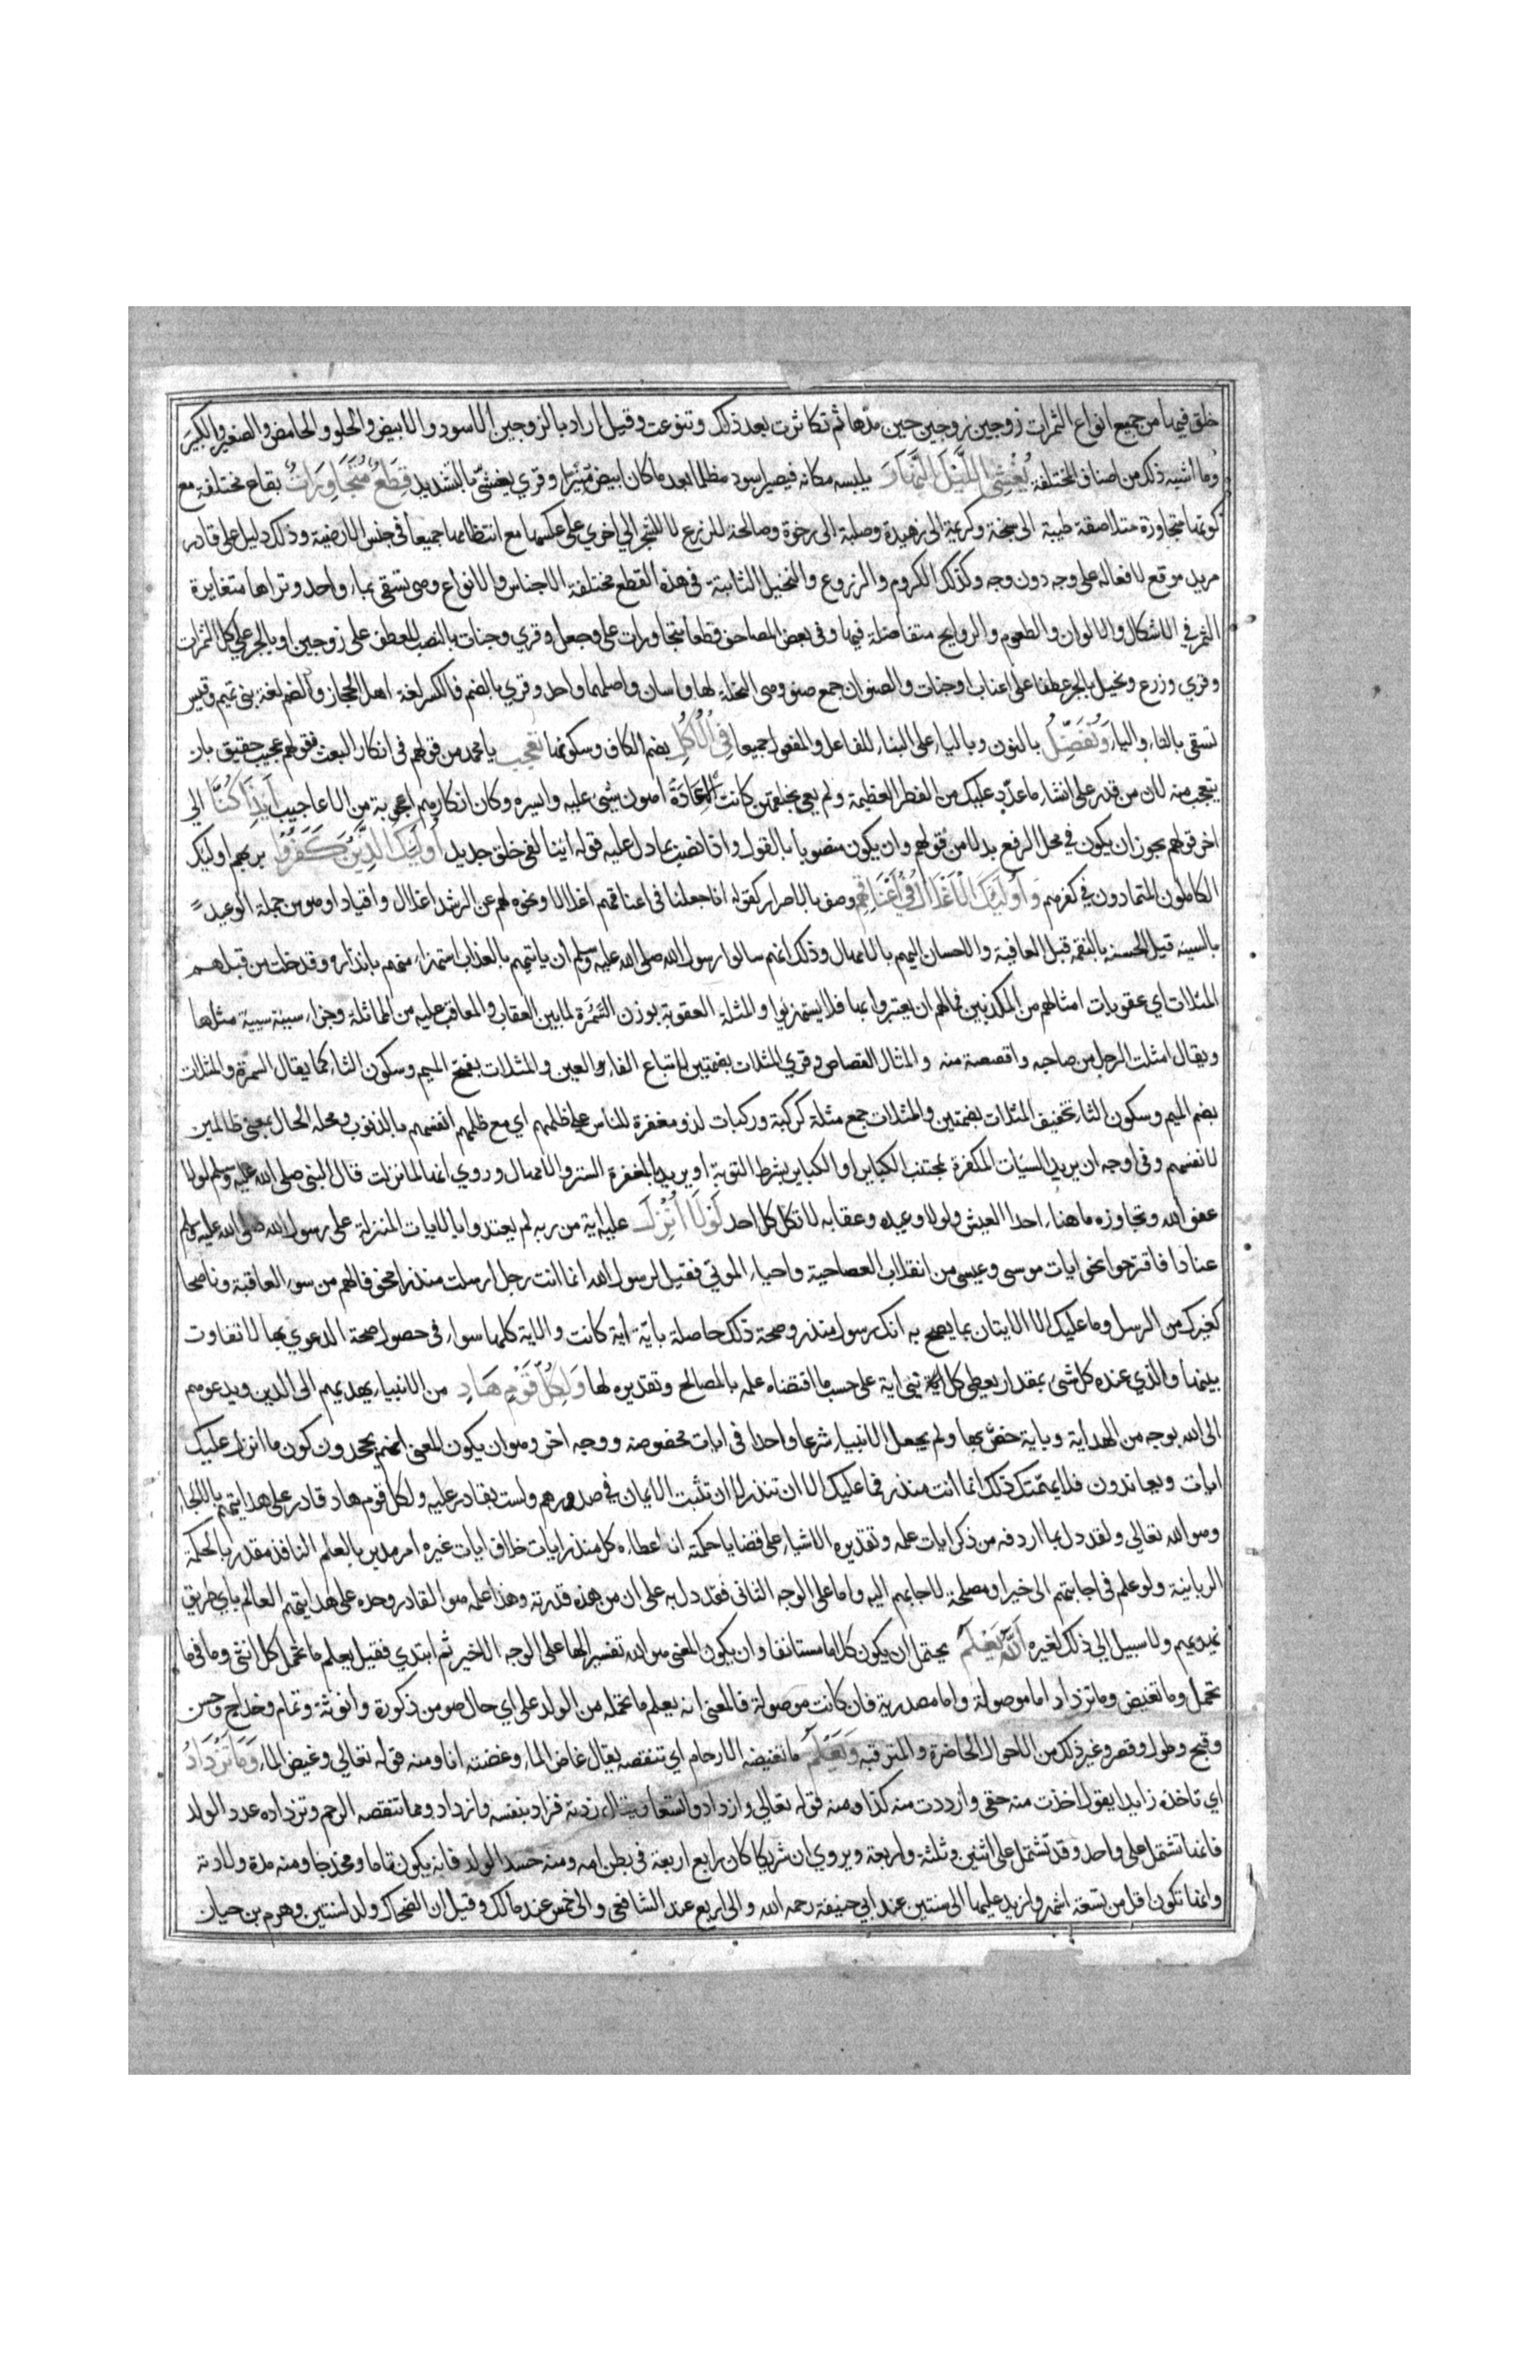 خلق فيها من جميع انواع الثمرات زوجين زوجين حين مدها ثم تكاثرت بعد ذلك وتنوعت وقيل اراد بالزوجين الاسود والابيض والحلو والحامض والصغير والكبير
وما اشبه ذلك من اصناف المختلفة يُغْشِى اللَّيْلَ النَّهَارَ يلبسه مكانه فيصير اسود مظلما بعد ما كان ابيض منيرا وقري يغشّي بالتشديد قِطَعٌ مُتَجَاوِرَاتٌ بقاع مختلفة مع
كونها متجاوزة متلاصقة طيبة الى سبخة وكريمة الى زهيدة وصلبة الى رخوة وصالحة للزرع لا للشجر الي اخري على عكسها مع انتظامها جميعا في جنس الارضية وذلك دليل على قادر
مريد موقع لافعاله على وجه دون وجه وكذلك الكروم والزروع والنخيل النابتة في هذه القطع مختلفة الاجناس والانواع وهي تسقى بماء واحد وتراها متغايرة
الثمر في الاشكال والالوان والطعوم والروايح متفاضلة فيها وفي بعض المصاحف قطعا متجاورات على وجعل وقري وجنات بالنصب للعطف على زوجين او بالجر على كل الثمرات
وقري وزرع ونخيل بالجر عطفا على اعناب او جنات والصنوان جمع صنو وهي النخلة لها راسان واصلهما واحد وقري بالضم فالكسر لغة اهل الحجاز والضم لغة بني تميم وقيس
تسقى بالتاء والياء وَنُفَضِّلُ بالنون وبالياء على البناء للفاعل والمفعول جميعا فِي الْأُكُلِ بضم الكاف وسكونها تعجب يا محمد من قولهم في انكار البعث فقولهم عجيب حقيق بان
يتعجب منه لان من قدر على انشاء ما عدّد عليك من الفطر العظيمة ولم يعي بخلقهن كانت الْاِعَادَةُ اهون شيئ عليه وايسره وكان انكارهم اعجوبة من الاعاجيب أَئِذَا كُنَّا الي
اخر قولهم يجوز ان يكون في محل الرفع بدلا من قولهم وان يكون منصوبا بالقول واذا نصب بما دل عليه قوله ائنا لفي خلق جديد أُولَئِكَ الَّذِينَ كَفَرُوا بربهم اوليك
الكاملون المتمادون في كفرهم وَأُولَئِكَ الْأَغْلَالُ فِي أَعْنَاقِهِمْ وصف بالاصرار كقوله انا جعلنا في اعناقهم اغلالا ونحوه لهم عن الرشد اغلال واقياد او هو من جملة الوعيد
بالسيئه قبل الحسنه بالنقمة قبل العافية والاحسان اليهم بالامهال وذلك انهم سالوا رسول الله صلى الله عليه وسلم ان ياتيهم بالعذاب استهزاء منهم بانذاره وقد خلت من قبلهم
المثلات اي عقوبات امثالهم من المكذبين فما لهم ان يعتبروا بها فلا يستهزئوا والمثلة العقوبة بوزن السَّمُرة لما بين العقاب والمعاقب عليه من المماثلة وجزاء سيئة سيئة مثلها
ويقال امثلت الرجل من صاحبه واقصصته منه والمثال القصاص وقري المثلات بضمتين لاتباع الفاء والعين والمثلات بفتح الميم وسكون الثاء كما يقال السمرة والمثلات
بضم الميم وسكون الثاء تخفيف المثلات بضمتين والمثلات جمع مثلة كركبة وركبات لذو مغفرة للناس على ظلمهم اي مع ظلمهم انفسهم بالذنوب ومحله الحال بمعنى ظالمين
لانفسهم وفي اوجه ان يريد السيات المكفرة بمجتنب الكباير او الكباير بشرط التوبة او يريد بالمغفرة الستر والامهال وروي انها لما نزلت قال النبي صلى الله عليه وسلم لولا
عفو الله وتجاوزه ما هناء احدا العيش ولولا وعيده وعقابه لاتكل كل احد لَوْلَا أُنْزِلَ عليه اية من ربه لم يعتدوا بالايات المنزلة على رسول الله صلى الله عليه وسلم
عنادا فاقترحوا نحو ايات موسى وعيسى من انقلاب العصا حية واحياء الموتي فقيل لرسول الله انما انت رجل ارسلت منذرا مخوفا لهم من سوء العاقبة وناصحا
كغيرك من الرسل وما عليك الا الايتان بما يصح به انك رسول منذر وصحة ذلك حاصلة باية اية كانت والاية كلها سواء في حصول صحة الدعوي بها لا تفاوت
بينها والذي عنده كل شئ بمقدار يعطي كل نبي اية على حسب ما اقتضاه علمه بالمصالح وتقديره لها وَلِكُلِّ قَوْمٍ هَادٍ من الانبياء يهديهم الى الدين ويدعوهم
الى الله بوجه من الهداية وباية خصّ بها ولم يجعل الانبياء شرعا واحدا في ايات مخصوصة ووجه اخر وهو ان يكون المعنى انهم يجحدون كون ما انزل عليك
ايات ويعاندون فلا يهمنك ذلك انما انت منذر فما عليك الا ان تنذر لا ان تثبت الايمان في صدورهم ولست بقادر عليه ولكل قوم هاد قادر على هدايتهم بالالجاء
وهو الله تعالي ولقد دل بما اردفه من ذكر ايات علمه وتقديره الاشياء على قضايا حكمته ان اعطاءه كل منذر ايات خلاف ايات غيره امر مدبر بالعلم النافذ مقدر بالحكمة
الربانية ولو علم في اجابتهم الى خيرا ومصلحة لاجابهم اليه واما على الوجه الثاني فقد دل به على ان من هذه قدرته وهذا علمه هو القادر وحده على هدايتهم العالم باي طريق
يهديهم ولا سبيل الي ذلك لغيره اَللَّهُ يَعْلَمُ يحتمل ان يكون كلاما مستانفا وان يكون المعنى هو الله تفسير الها على الوجه الاخير ثم ابتدي فقيل يعلم ما تحمل كل انثى وما في ما
تحمل وما تغيض وما تزداد اما موصولة واما مصدرية فان كانت موصولة فالمعنى انه يعلم ما تحمله من الولد على اي حال هو من ذكورة وانوثة وتمام وخداج وحسن
وقبح وطول وقصر وغير ذلك من الاحوال الحاضرة والمترقبه وَيَعْلَمُ ما تغيضه الارحام اي تنقصه يقال غاض الماء وغضته انا ومنه قوله تعالي وغيض الماء وَمَا تَزْدَادُ
اي تاخذه زايدا يقول اخذت منه حقي وازددت منه كذا ومنه قوله تعالي وازدادوا تسعا ويقال زدته فزاد بنفسه وازداد ومما تنقصه الرحم وتزداده عدد الولد
فانها تشتمل على واحد وقد تشتمل على اثنين وثلثة واربعة ويروي ان شريكا كان رابع اربعة في بطن امه ومنه جسد الولد فانه يكون تاما ومخدجا ومنه مدة ولادته
وانها تكون اقل من تسعة اشهر وازيد عليها الى سنتين عند ابي حنيفة رحمه الله والى اربع عند الشافعي والى خمس عند مالك وقيل ان الضحاك ولد لسنتين وهرم بن حيان